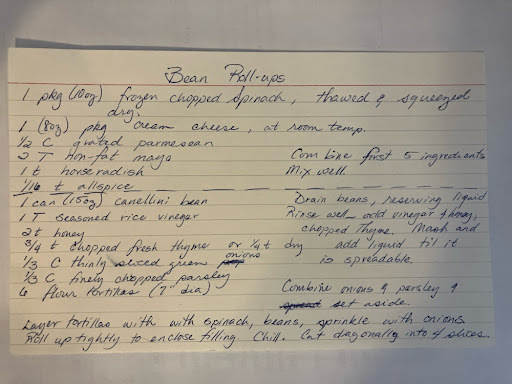 Bean Roll-ups
1 pkg (10oz) frozen chopped spinach, thawed & squeezed
dry.
1 (8oz) pkg cream cheese, at room temp.
1/2 C grated parmesean
2 T non-fat mayo Combine first 5 ingredients
1 t horseradish Mix well.
1/16 t allspice
1 can (15oz) canellini bean Drain beans, reserving liquid
1 T seasoned rice vinegar Rinse well add vinegar & honey,
2 t honey chopped thyme. Mash and
3/4 t chopped fresh thyme or 1/4 t dry add liquid til it
1/3 C thinly sliced green onions is spreadable.
1/3 C finely chopped parsley
6 flour tortillas (7" dia) Combine onions & parsley &
set aside.
Layer tortillas with with spinach, beans, sprinkle with onions
Roll up tightly to enclose filling. Chill. Cut diagonally into 4 slices.